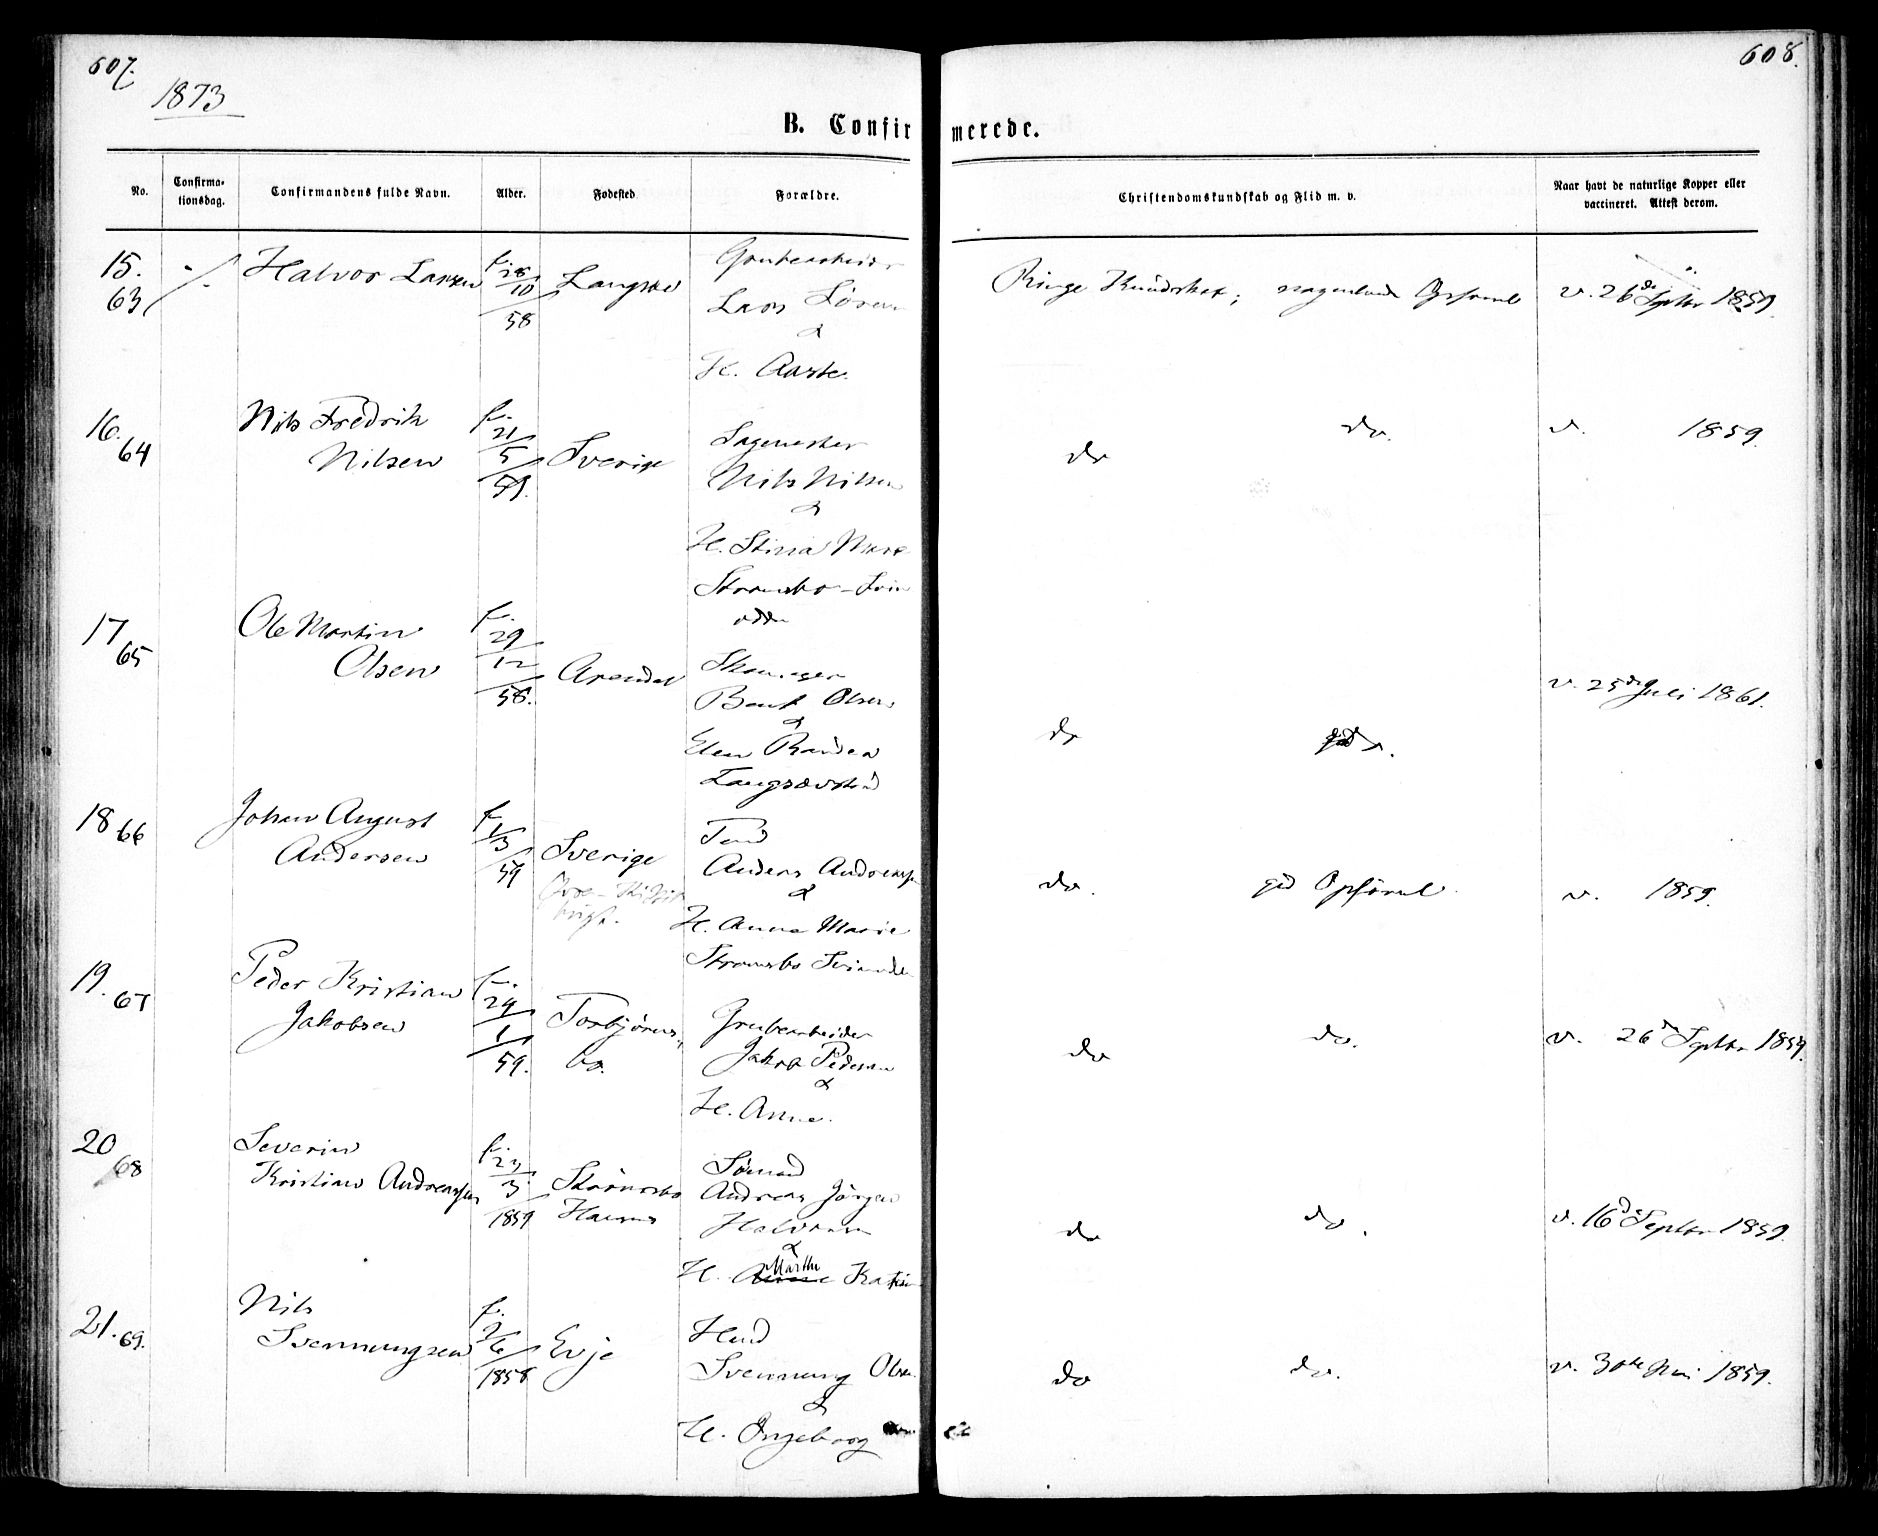 607. 608.
1873
B. Confirmerede.
No. Confirmationsdag. Confirmandens fulde Navn. Alder. Fødested Forældre. Christendomskundskab og Flid m. v. Naar havt de naturlige Kopper eller vaccineret. Attest derom.
15. 63 Halvor Larsen f. 28/10/58 Langsæ
Grubearbeider
Lars
&
H.
Ringe Kundskab; Opførsel v. 26de Septbr 1859.
16. 64 Nils Fredrik
Nilsen f. 21/5/59. Sverige
Sagmester
Nils Nilsen
&
H. Stina
do do. v. 1859.
17 65 Ole Martin
Olsen f. 29/12/58. Arendal
Bent Olsen
&
Elen
do v. 25de Juli 1861.
18 66 Johan August
Andersen f. 1/3/59 Sverige
Anders Andreassen
&
H. Anne Marie
do. god Opførsel. v. 1859.
19. 67 Peder Kristian
Jakobsen f. 24/1/59. Torbjørnsbo.
Grubearbeider
Jakob Pedersen
&
H. Anne.
do do. v. 26de Septbr 1859.
20 68 Severin
Kristian Andreassen f. 23/3/1859
Sømand
Andreas Jørgen
Halvorsen
&
H. Marthe
do do. v. 16de Septbr 1859.
21. 69. Nils
Svennungsen f. /6/1858 Evje
Hmd
Svennung Olsen
&
H. Ingeborg
do do. v. 30te Juni 1859.